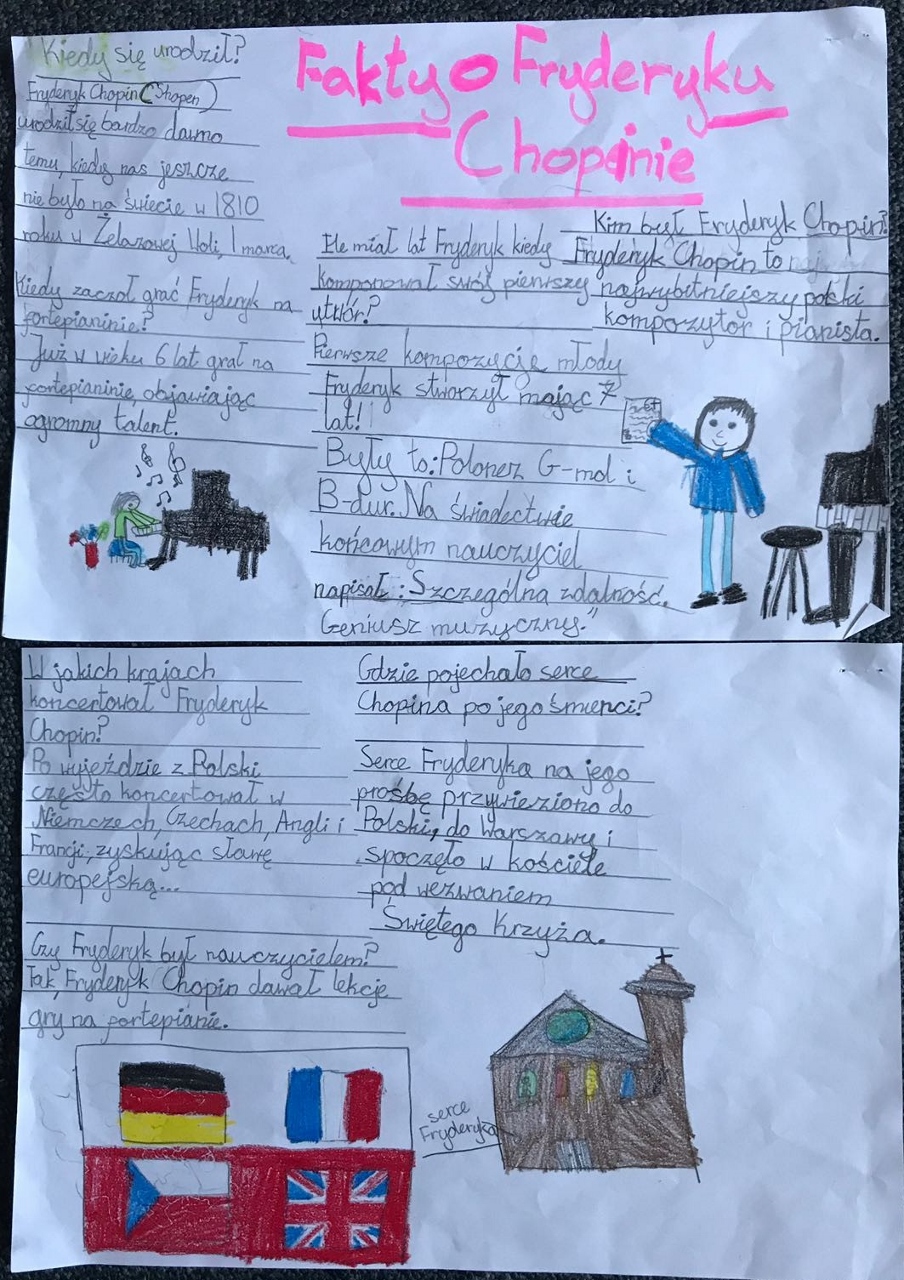 Fakty o Fryderyku
Chopinie
Kiedy się urodził?
Fryderyk Chopin (Shopen)
urodził się bardzo dawno
temu, kiedy nas jeszcze
nie było na świecie w 1810
roku w Żelazowej Woli, 1 marca.
Kiedy zaczoł grać Fryderyk na
fortepianinie?
Już w wieku 6 lat grał na
fortepianinie, objawiając
ogromny talent.
Ile miał lat Fryderyk kiedy
komponował swój pierwszy
utwór?
Pierwsze kompozycje młody
Fryderyk stworzył mając 7
lat!
Były to: Polonez G-mol i
B-dur. Na świadectwie
końcowym nauczyciel
napisał: Szczególna zdalność.
Geniusz muzyczny."
Kim był Fryderyk Chopin?
Fryderyk Chopin to
najwybitniejszy polski
kompozytor i pianista.
W jakich krajach
koncertował Fryderyk
Chopin?
Po wyjeździe z Polski
często koncertował w
Niemczech, Czechach, Angli i
Francji, zyskując sławę
europejską...
Czy Fryderyk był nauczycielem?
Tak, Fryderyk Chopin dawał lekcje
gry na fortepianie.
Gdzie pojechało serce
Chopina po jego śmierci?
Serce Fryderyka na jego
prośbę przywieziono do
Polski, do Warszawy i
spoczęło w kościele
pod wezwaniem
Świętego Krzyża.
serce
Fryderyka